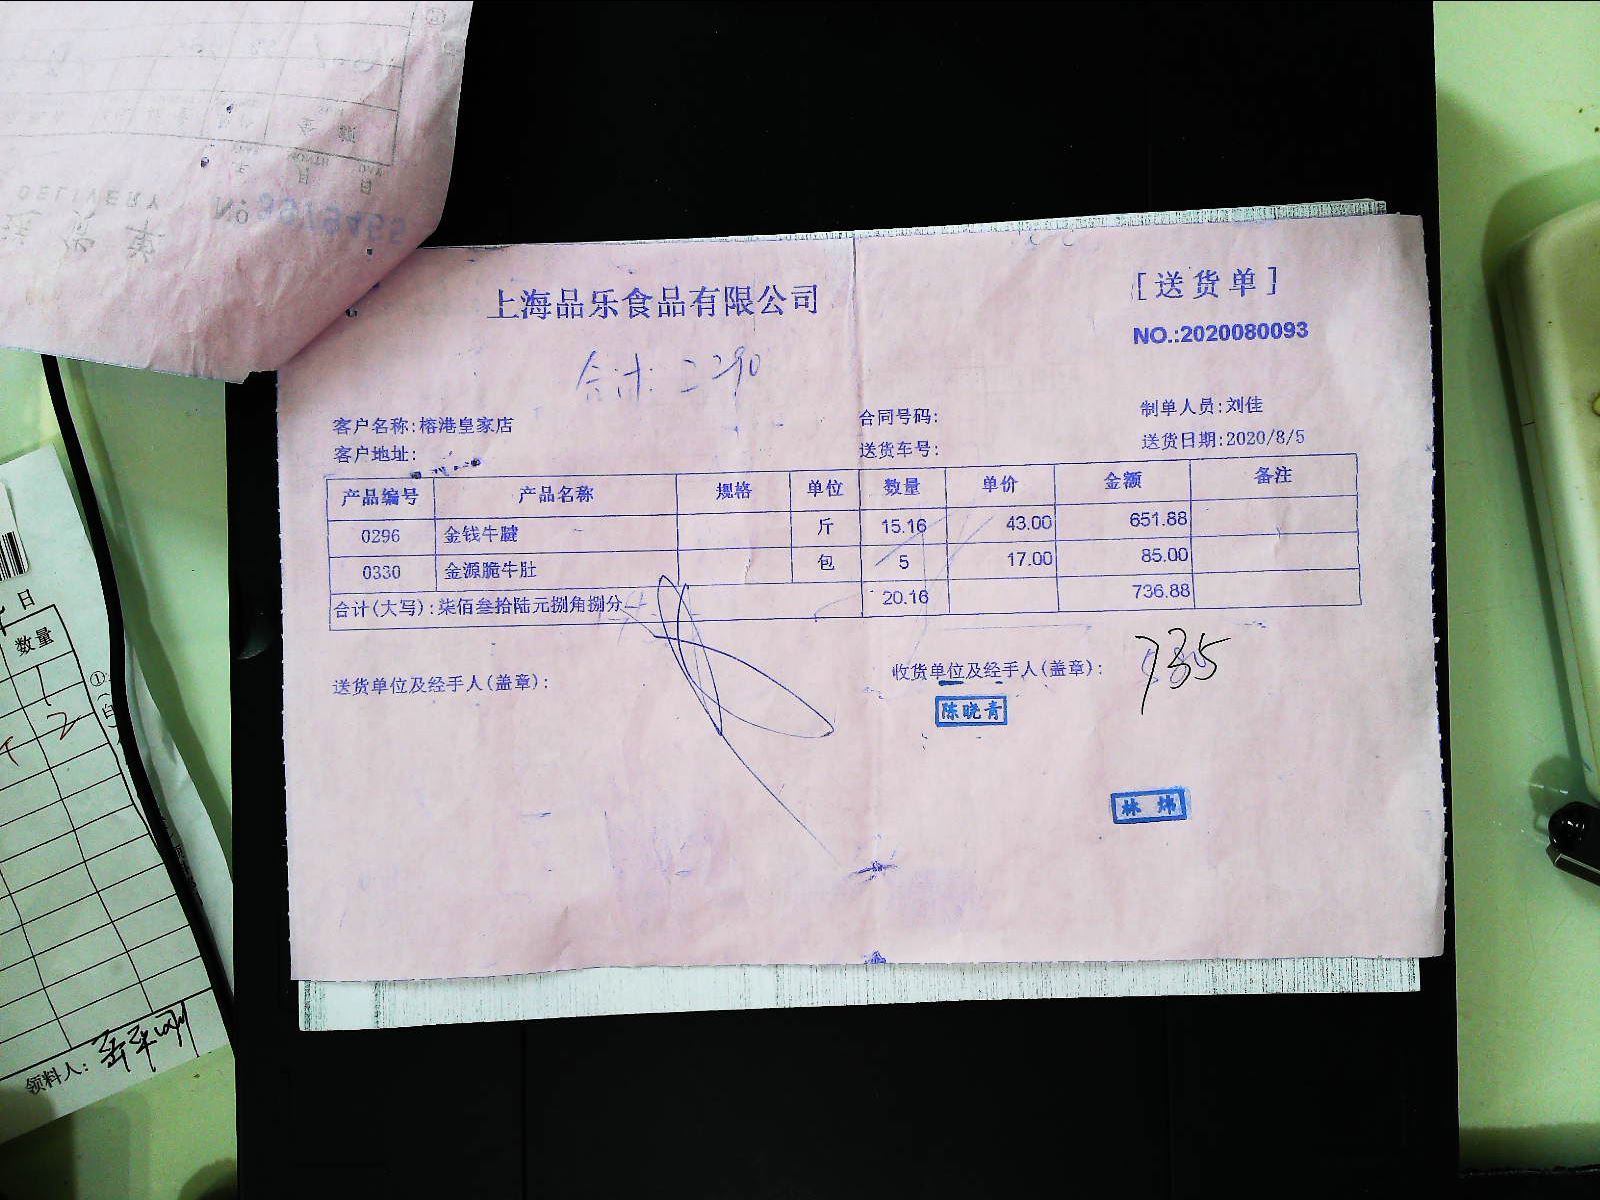 上海品乐食品有限公司
[送货单]
NO.:2020080093
合计: 2290
客户名称:榕港皇家店
合同号码:
制单人员:刘佳
客户地址:
送货车号:
送货日期:2020/8/5
产品编号 产品名称 规格 单位 数量 单价 金额 备注
0296 金钱牛腱 斤 15.16 43.00 651.88
0330 金源脆牛肚 包 5 17.00 85.00
合计(大写):柒佰叁拾陆元捌角捌分 20.16 736.88
送货单位及经手人(盖章):
收货单位及经手人(盖章):
735
陈晓青
林炜
日
数量
1
2
领料人:
DELIVERY
No